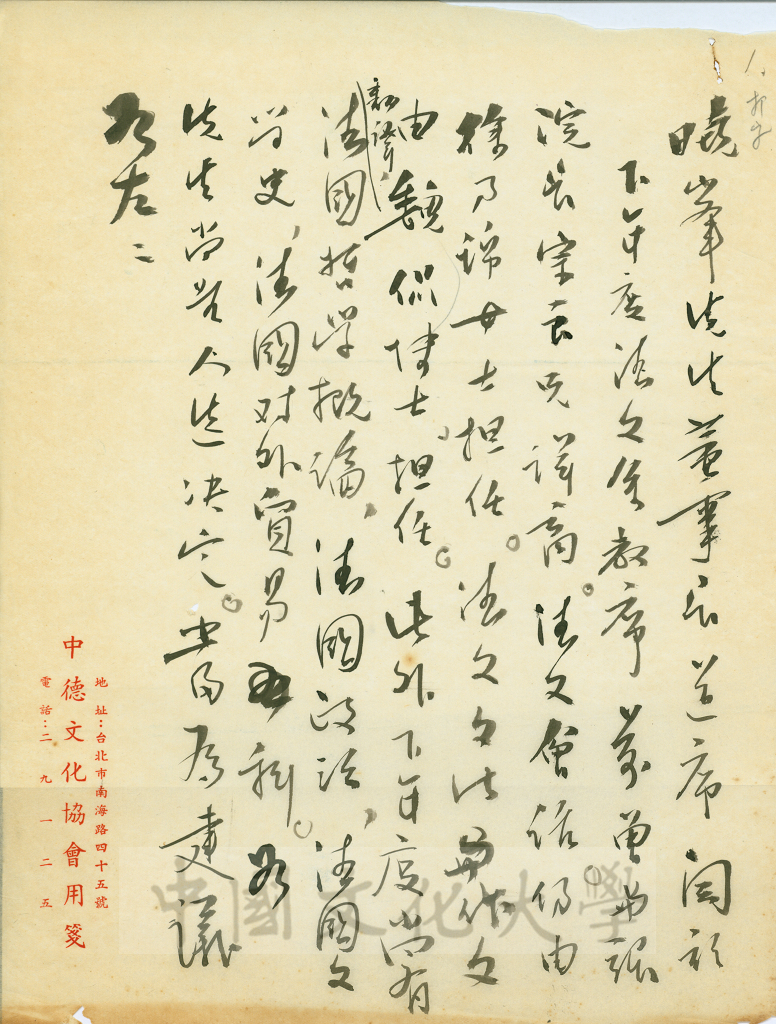 1、打字
曉峯先生董事長道席 關於
下年度法文系教席 曾與張
院長宗良兄詳商。法文會話仍由
徐乃錦女士担任。法文文法與作文
翻譯
由魏侃博士担任。此外下年度尚有
法國哲学概論、法國政治、法國文
学史、法國对外貿易科。如
先生尚無人選決定。当為建議
如左:
地址:台北市南海路四十五號
中德文化協會用箋
電話:二九一二五
中國文化大學